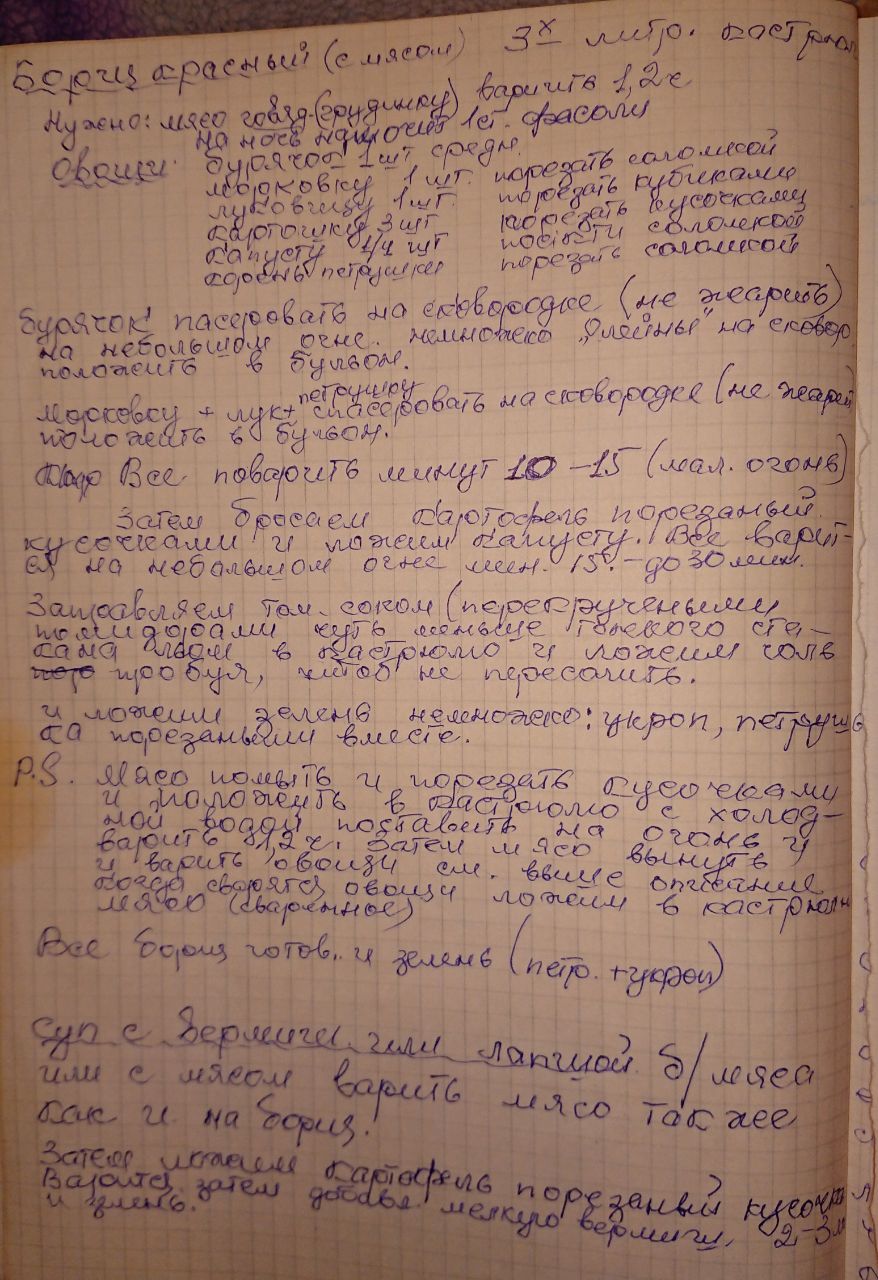 Борщ красный (с мясом) 3х литр. кастрюл
Нужно: мясо говяд. (грудинку) варить 1,2 ч
на ночь намочит 1ст. фасоли
Овощи: бурячок 1 шт средн.
морковку 1 шт. порезать соломкой
луковицу 1 шт. порезать кубиками
картошки 3 шт порезать кусочками
капусту 1/4 шт посікти соломкой
корень петрушки порезать соломкой
Бурячок пасеровать на сковородке (не жарить)
на небольшом огне. немножко "олейны" на сковор
положить в бульон.
петрушку
Морковку + лук + спасеровать на сковородке (не жарет
положить в бульон.
Все поварить минут 10-15 (мал. огонь)
Затем бросаем картофель порезаный
кусочками и ложим капусту. Все варит-
ся на небольшом огне мин. 15.-до 30 мин.
Заправляем том. соком (перекручеными
помидорами чуть меньше тонкого ста-
кана льем в кастрюлю и ложим соль
пробуя, чтоб не пересолить.
и ложим зелень немножко: укроп, петруш
ка порезаными вместе.
P.S. Мясо помыть и порезать кусочками
и положить в кастрюлю с холод-
ной водой поставить на огонь и
варить 1,2 ч. Затем мясо вынуть
и варить овощи см. выше описание
когда сварятся овощи ложим в кастрюлю
мясо (сваренное)
Все борщ готов. и зелень (петр. + укроп)
Суп с вермиш. или лапшой б/мяса
или с мясом варить мясо так же
как и на борщ.
Затем ложим картофель порезаный кусочка
Варится затем добавл. мелкую вермиш. 2-3 м
и зелень.